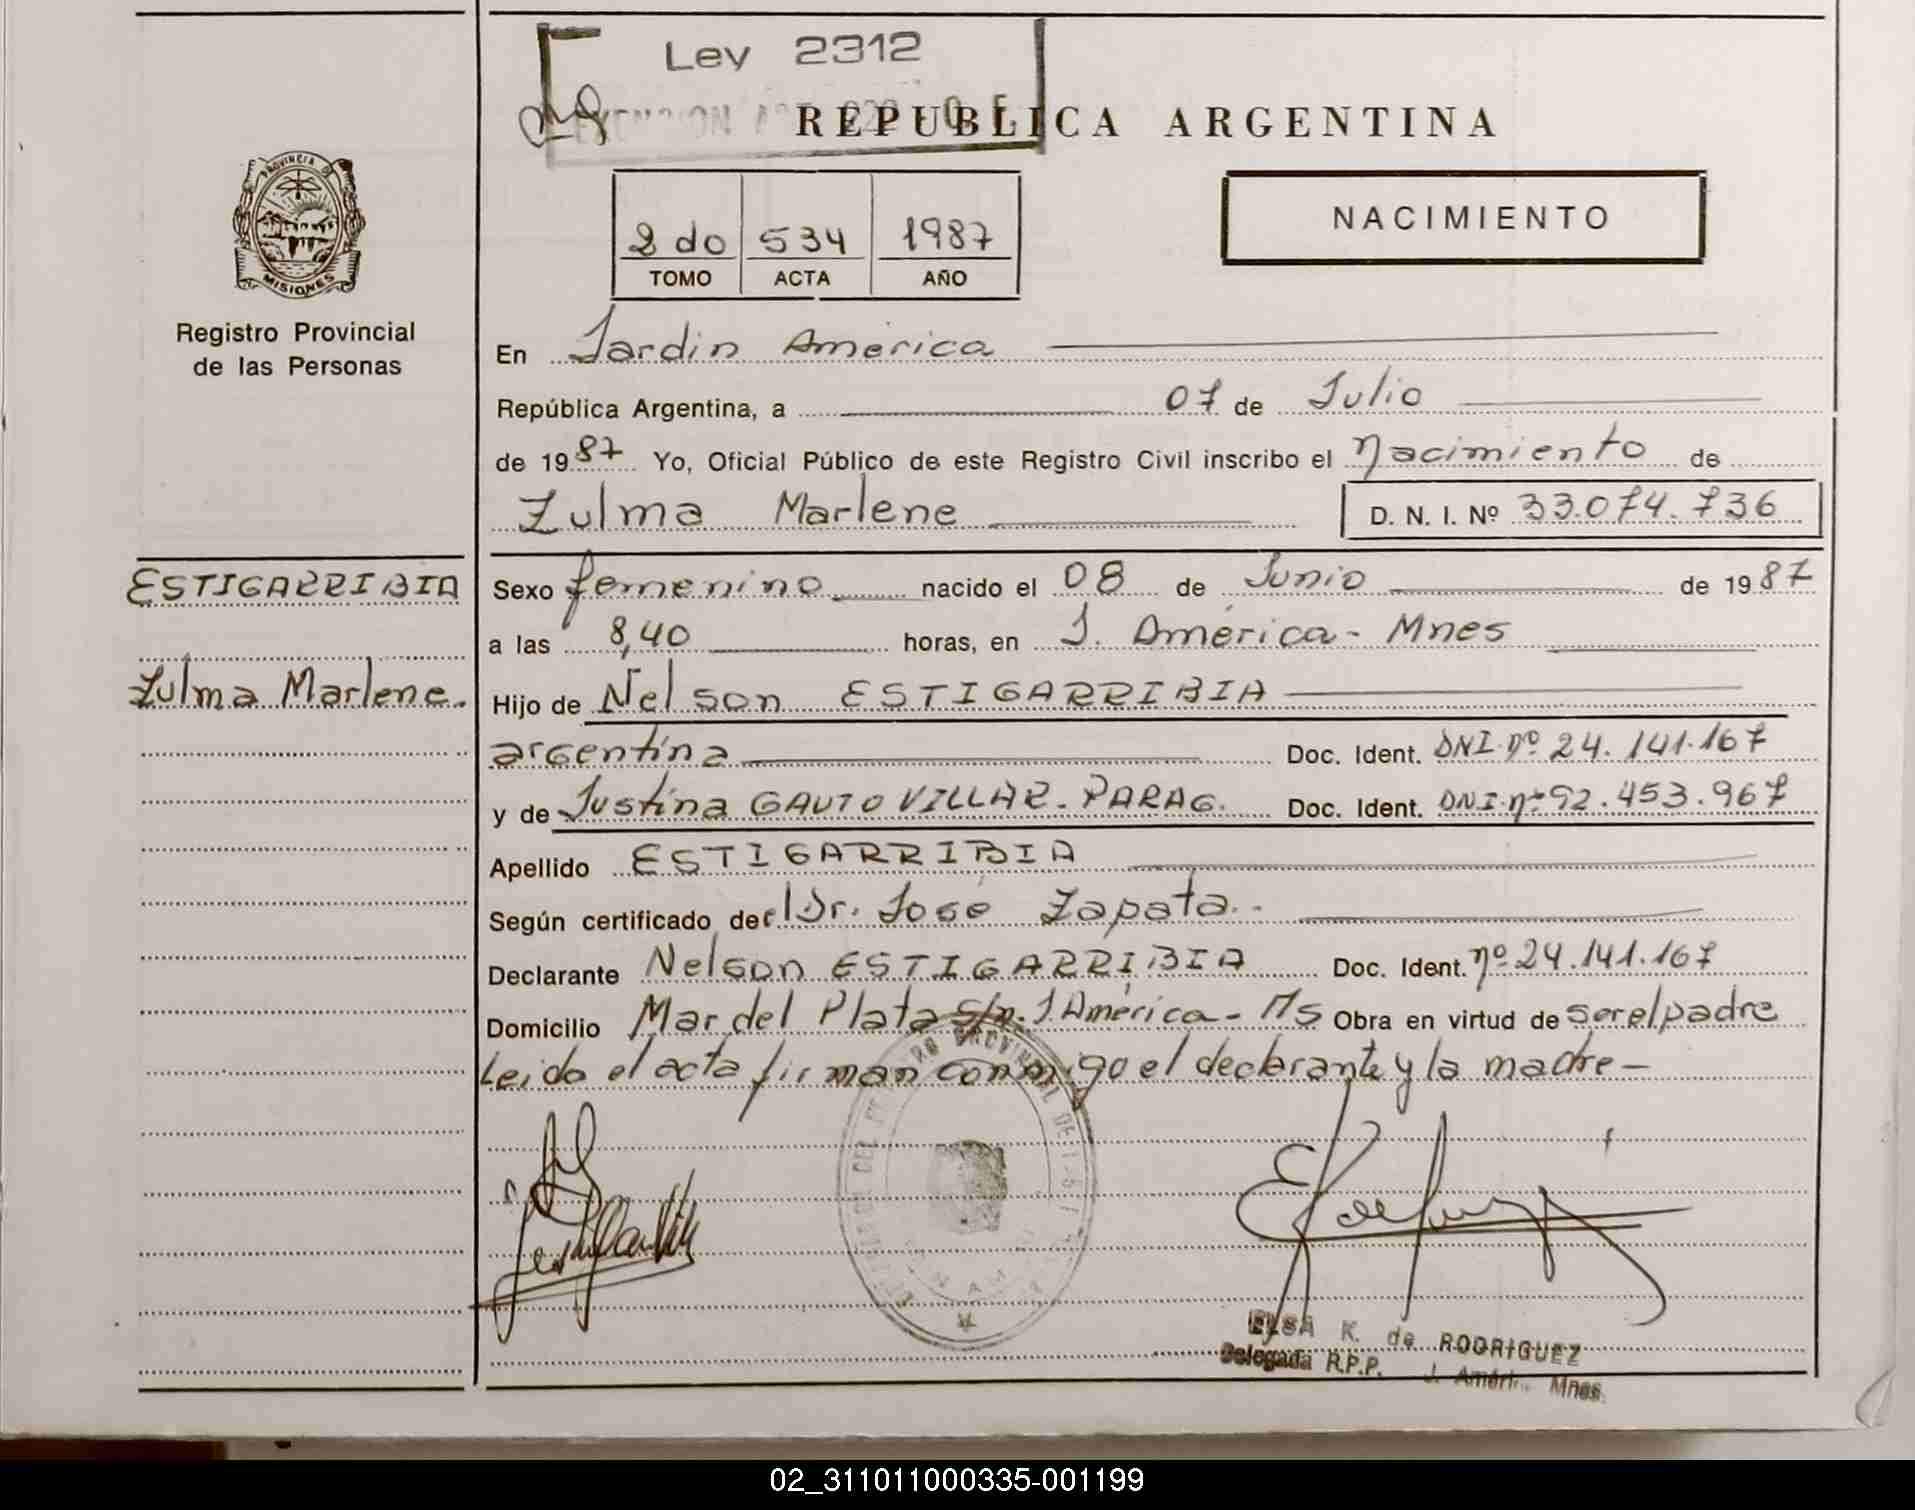 Ley 2312
REPUBLICA ARGENTINA
PROVINCIA DE
MISIONES
Registro Provincial
de las Personas
2 do 534 1987
TOMO ACTA AÑO
NACIMIENTO
En Jardin América
República Argentina, a 07 de Julio
de 1987 Yo, Oficial Público de este Registro Civil inscribo el Nacimiento de
Zulma Marlene D. N. I. Nº 33.074.736
ESTIGARRIBIA
Zulma Marlene.
Sexo femenino nacido el 08 de Junio de 1987
a las 8,40 horas, en J. América - Mnes
Hijo de Nelson ESTIGARRIBIA
argentina Doc. Ident. DNI. nº 24.141.167
y de Justina GAUTO VILLAR. PARAG. Doc. Ident. DNI. nº 92.453.967
Apellido ESTIGARRIBIA
Según certificado de Dr. José Zapata.
Declarante Nelson ESTIGARRIBIA Doc. Ident. nº 24.141.167
Domicilio Mar del Plata s/n. J. América - Ms Obra en virtud de ser el padre
Leido el acta firman conmigo el declarante y la madre -
ELSA K. de RODRIGUEZ
Delegada R.P.P. J. Améri. Mnes.
02_311011000335-001199